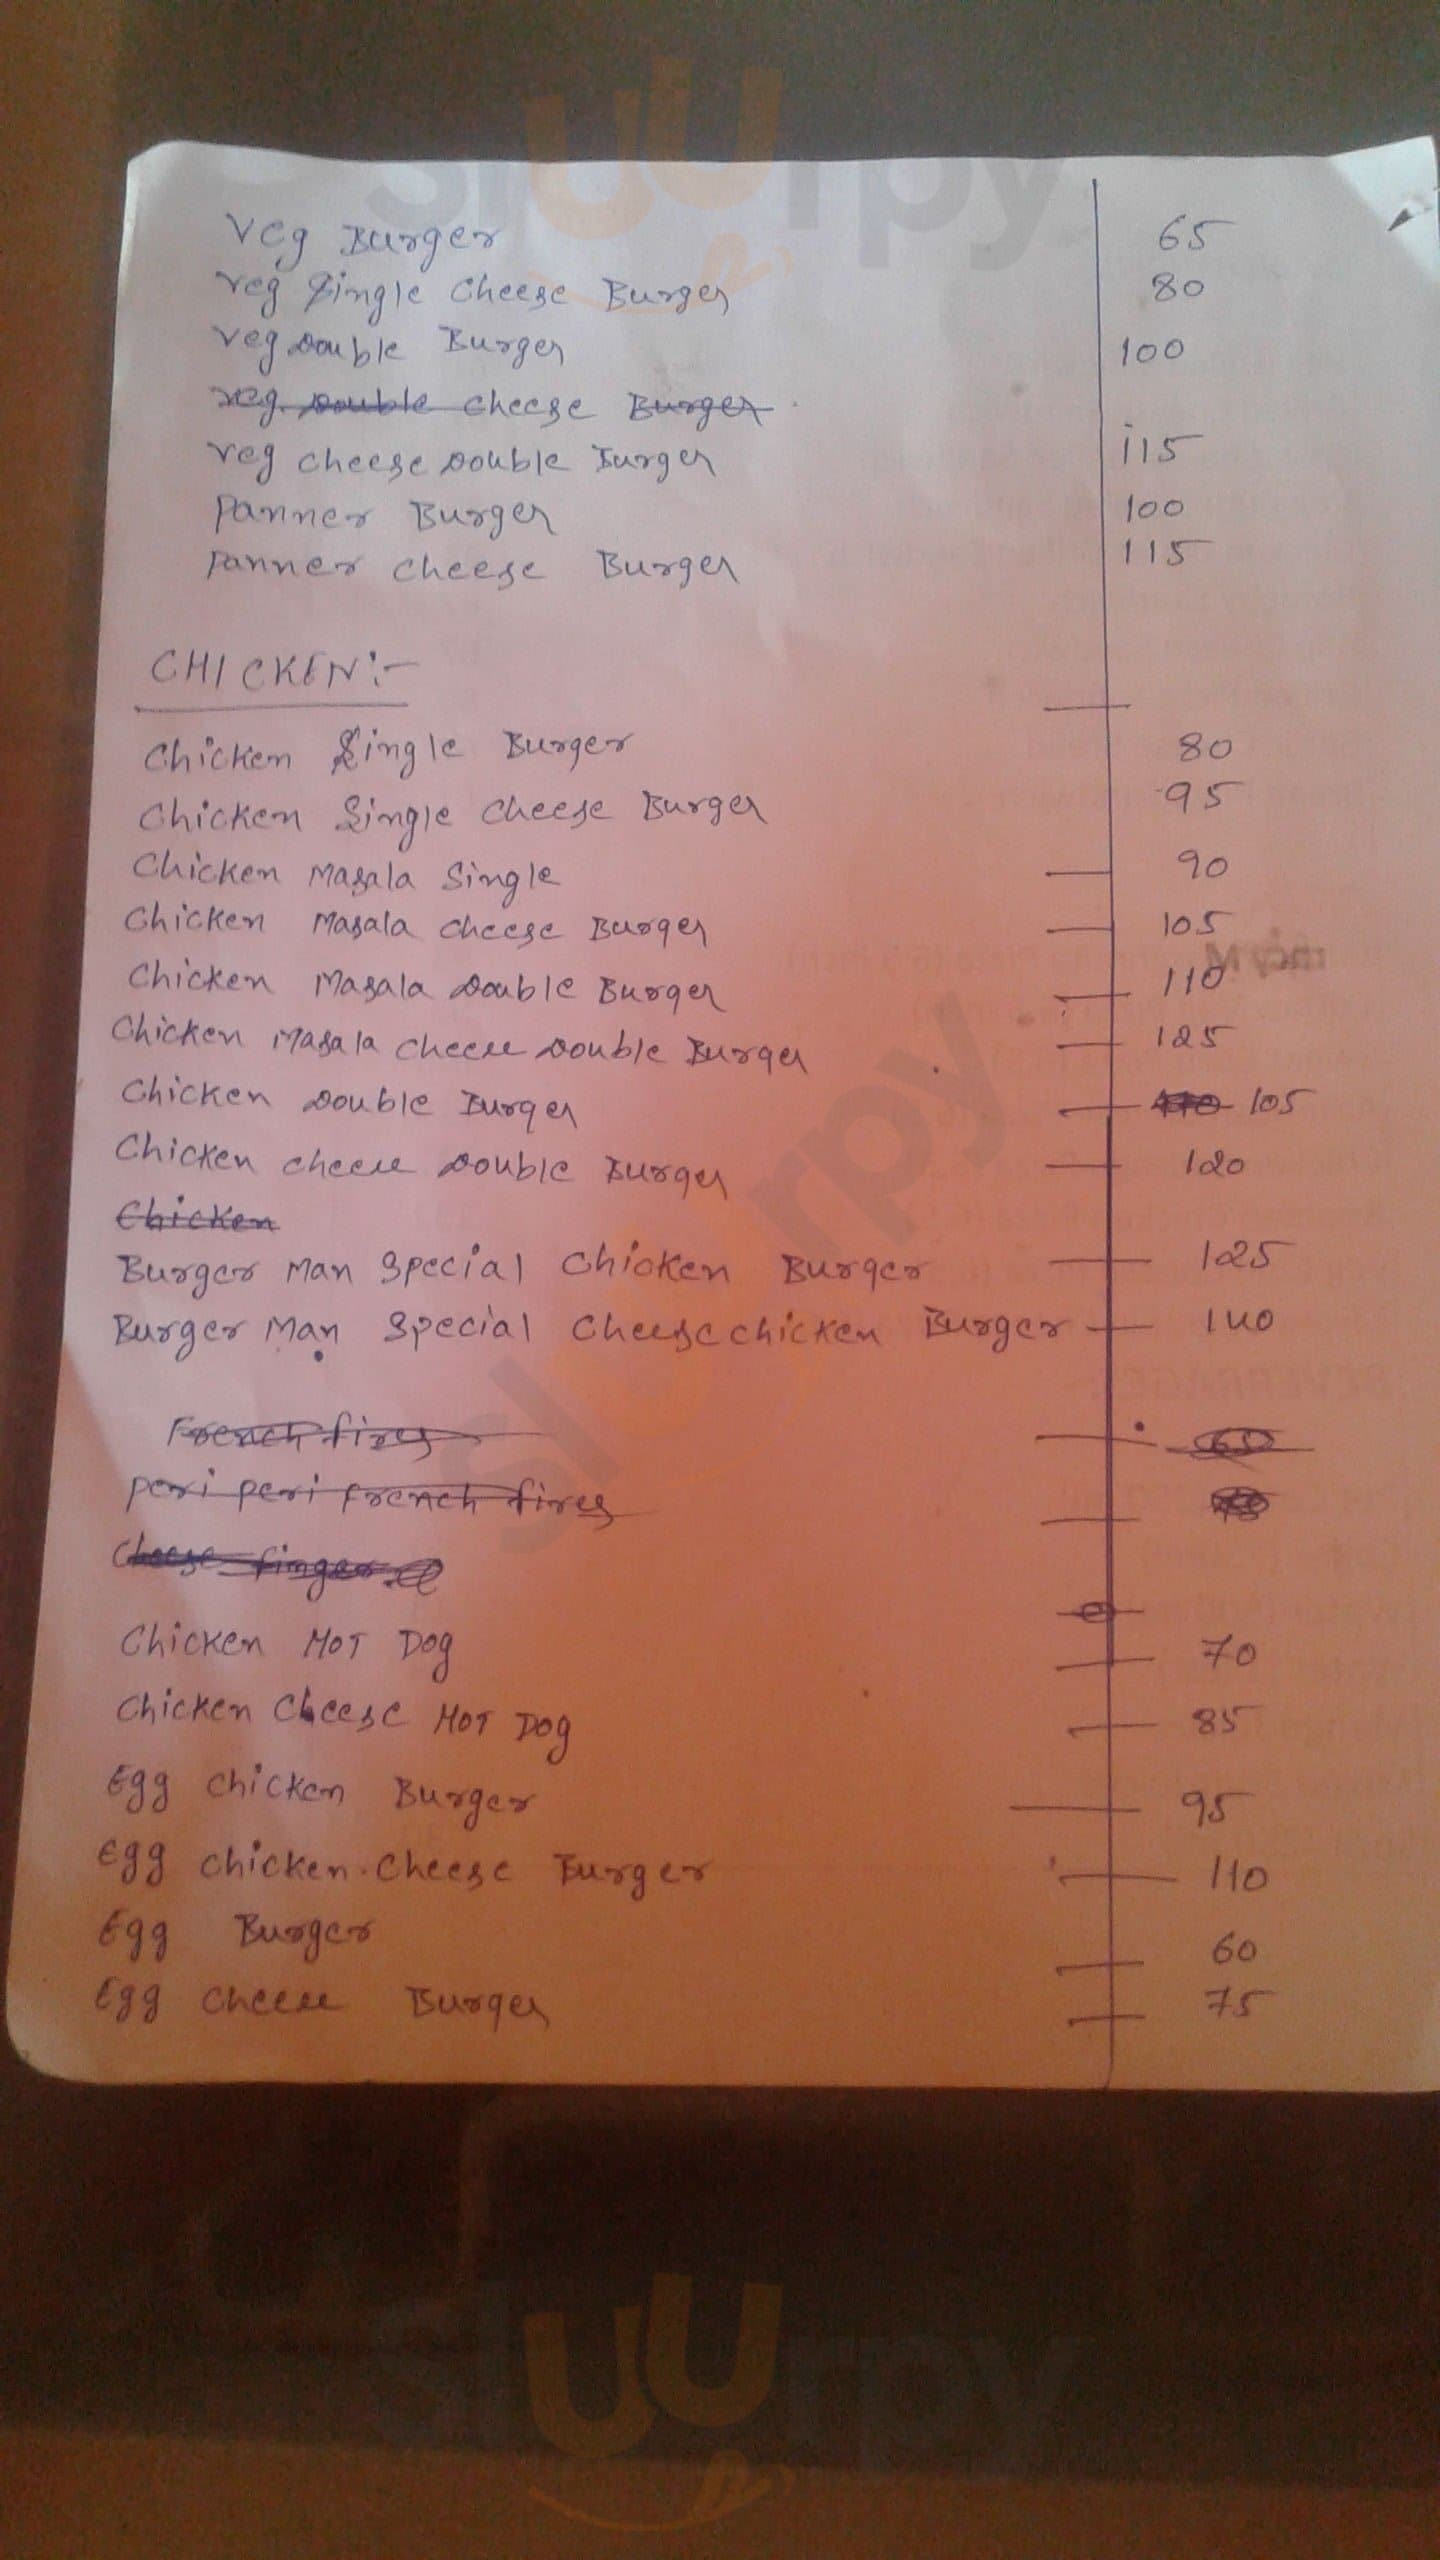 sluurpy
Veg Burger 65
Veg Single Cheese Burger 80
Veg Double Burger 100
Veg Double Cheese Burger
Veg Cheese Double Burger 115
Panner Burger 100
Panner Cheese Burger 115
CHICKEN:-
Chicken Single Burger 80
Chicken Single Cheese Burger 95
Chicken Masala Single 90
Chicken Masala Cheese Burger 105
Chicken Masala Double Burger 110
Chicken Masala Cheese Double Burger 125
Chicken Double Burger 110 105
Chicken Cheese Double Burger 120
Chicken
Burger Man Special Chicken Burger 125
Burger Man Special Cheese Chicken Burger 140
French fires
Peri Peri French fires
Cheese finger
Chicken HOT DOG 70
Chicken Cheese HOT DOG 85
Egg Chicken Burger 95
Egg Chicken Cheese Burger 110
Egg Burger 60
Egg Cheese Burger 75
sluurpy
sluurpy